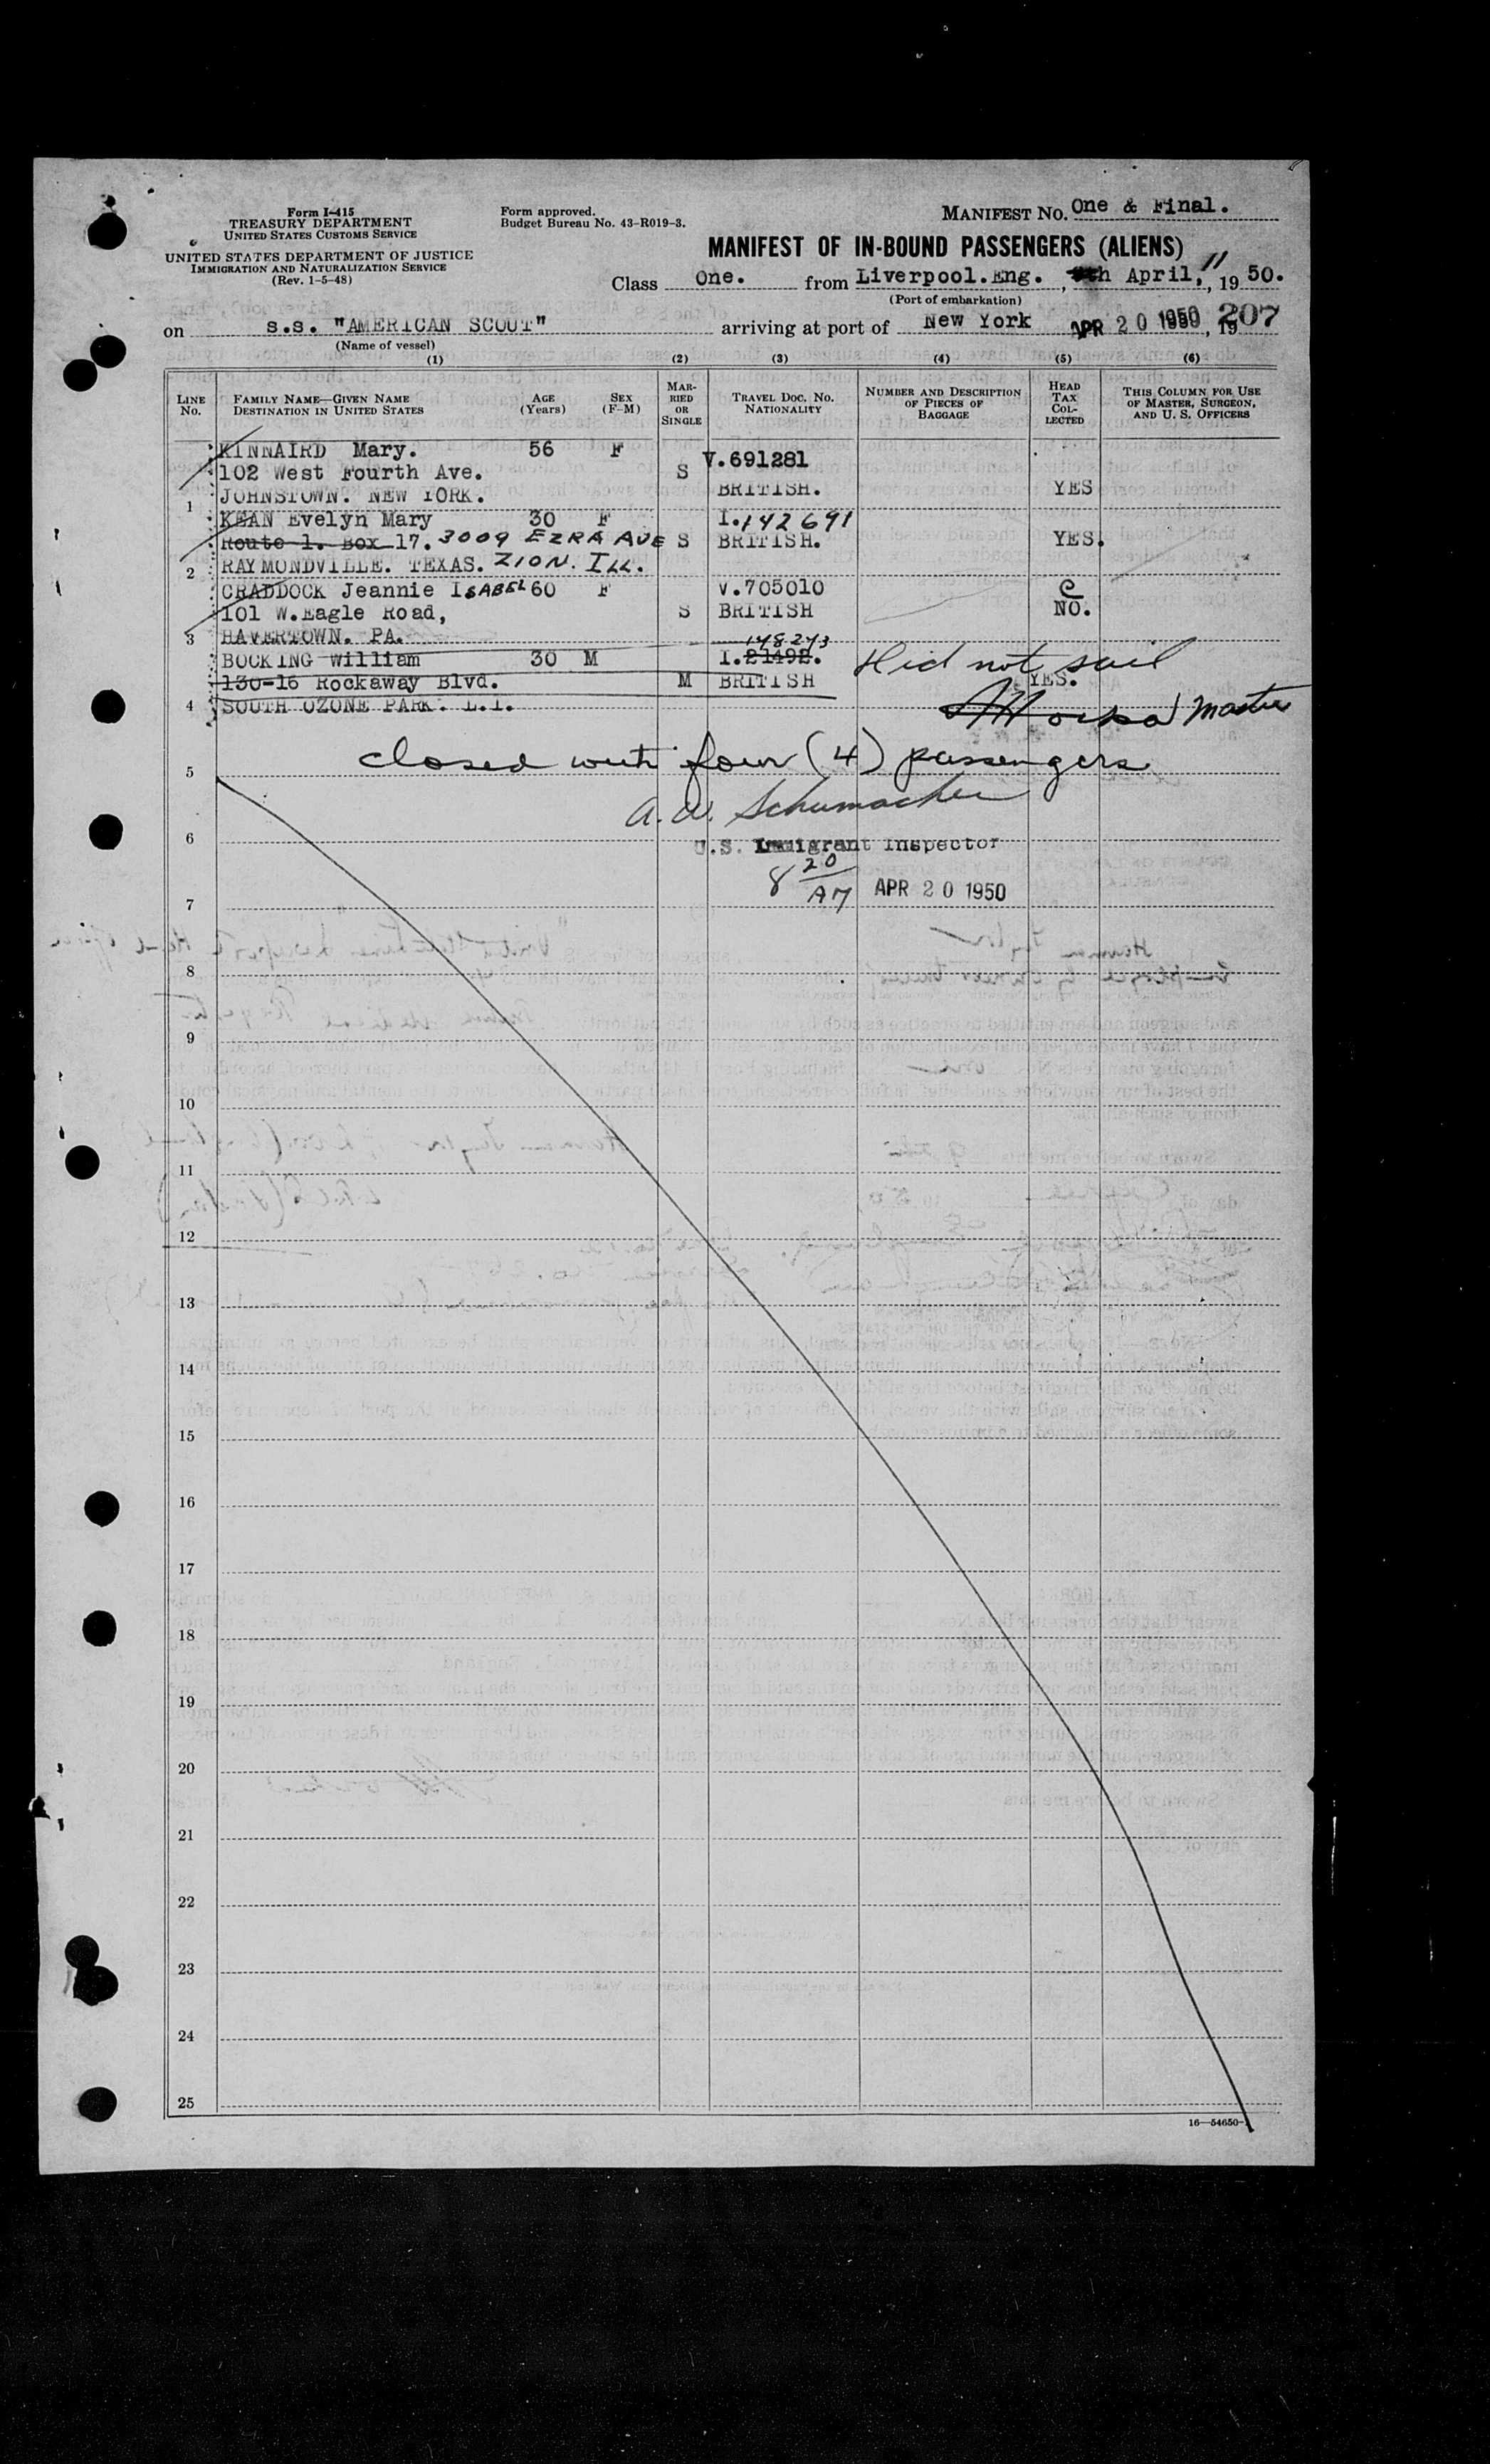 Form I-415
TREASURY DEPARTMENT
UNITED STATES CUSTOMS SERVICE
UNITED STATES DEPARTMENT OF JUSTICE
IMMIGRATION AND NATURALIZATION SERVICE
(Rev. 1-5-48)
Form approved.
Budget Bureau No. 43-R019-3.
MANIFEST NO. One & Final.
MANIFEST OF IN-BOUND PASSENGERS (ALIENS)
Class One. from Liverpool.Eng. , April, 11, 1950.
(Port of embarkation)
on s.s. "AMERICAN SCOUT" arriving at port of New York APR 20 1950, 19 207
(Name of vessel)
(1) (2) (3) (4) (5) (6)
LINE NO. FAMILY NAME—GIVEN NAME DESTINATION IN UNITED STATES AGE (Years) SEX (F-M) MARRIED OR SINGLE TRAVEL DOC. NO. NATIONALITY NUMBER AND DESCRIPTION OF PIECES OF BAGGAGE HEAD TAX COLLECTED THIS COLUMN FOR USE OF MASTER, SURGEON, AND U. S. OFFICERS
KINNAIRD Mary. 56 F V.691281
102 West Fourth Ave. S
1 JOHNSTOWN. NEW YORK. BRITISH. YES
KEAN Evelyn Mary 30 F I.142691
Route 1. Box 17. 3009 EZRA AVE S BRITISH. YES.
2 RAYMONDVILLE. TEXAS. ZION. ILL.
CRADDOCK Jeannie ISABEL 60 F V.705010 C
101 W.Eagle Road, S BRITISH NO.
3 HAVERTOWN. PA.
148243
BOCKING William 30 M I.21492. Did not sail
130-16 Rockaway Blvd. M BRITISH YES.
4 SOUTH OZONE PARK. L.I. Master
5 closed with four (4) passengers
A. W. Schumacher
6
U.S. Immigrant Inspector
8 20 AM APR 20 1950
7
8
9
10
11
12
13
14
15
16
17
18
19
20
21
22
23
24
25
16—54650-1